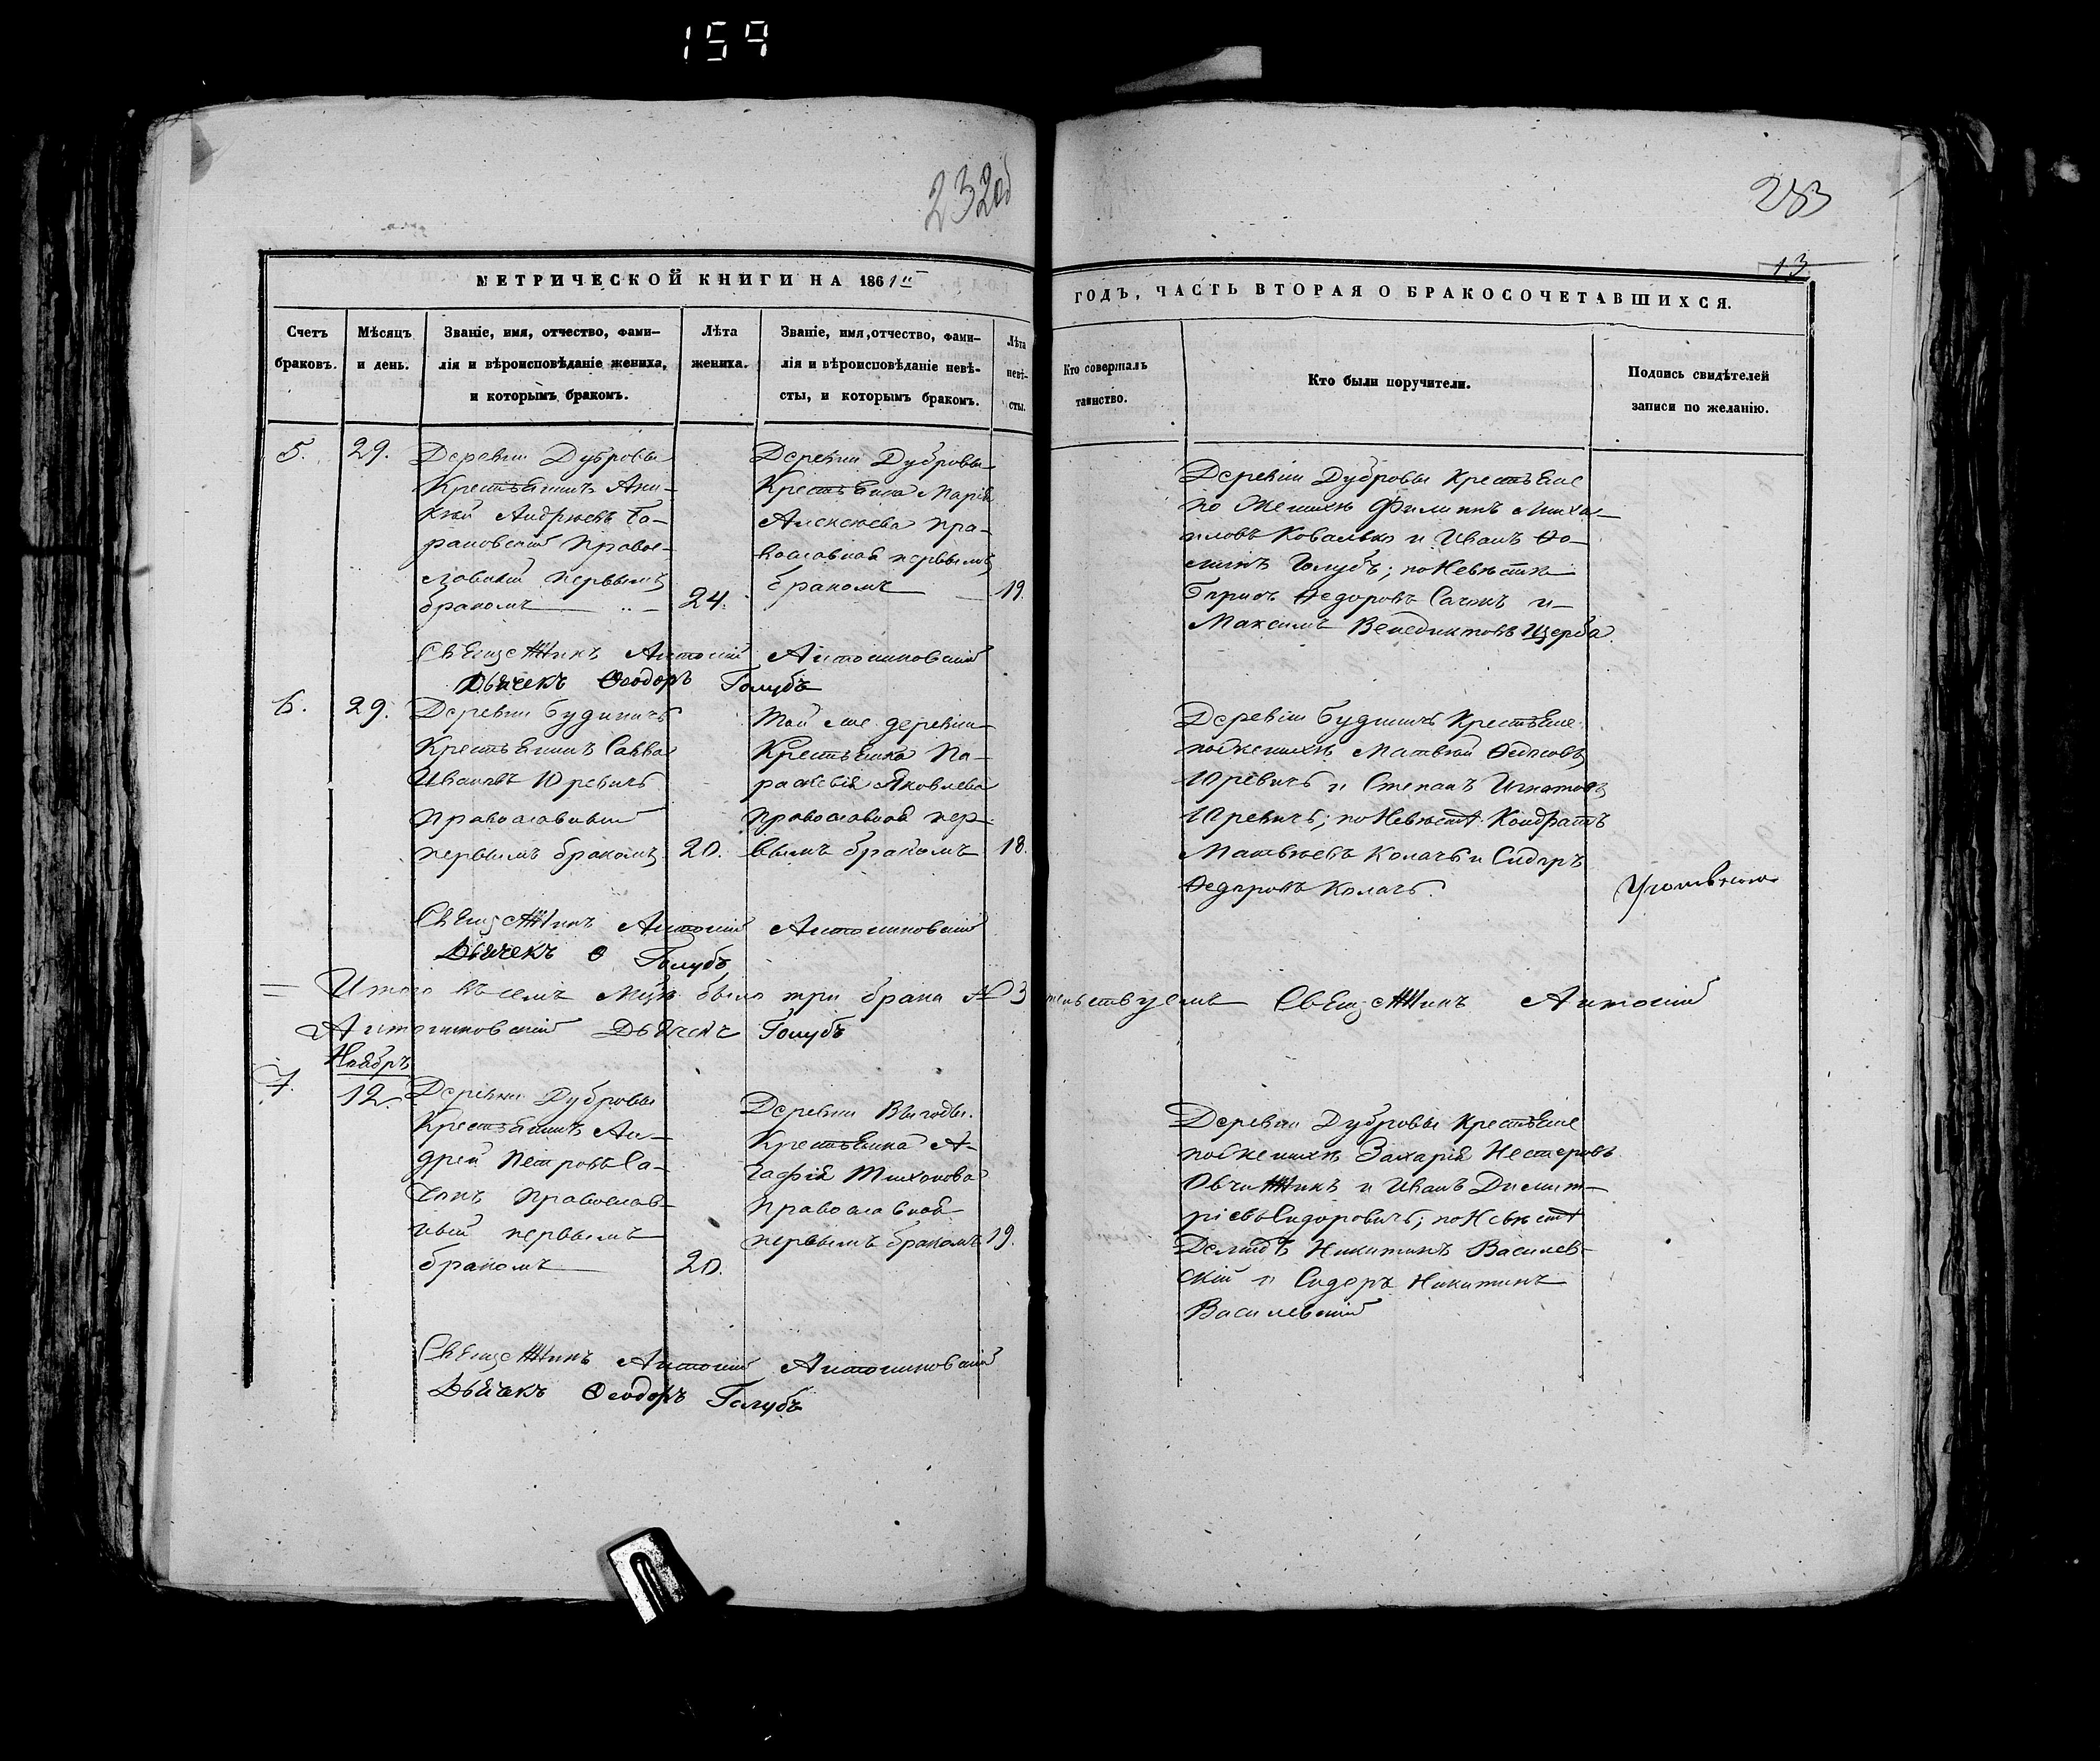 159
232об
283
13
МЕТРИЧЕСКОЙ КНИГИ НА 1861й
ГОДЪ, ЧАСТЬ ВТОРАЯ О БРАКОСОЧЕТАВШИХСЯ.
Счетъ
браковъ.
Мѣсяцъ
и день.
Званіе, имя, отчество, фами-
лія и вѣроисповѣданіе жениха,
и которымъ бракомъ.
Лѣта
жениха.
Званіе, имя, отчество, фами-
лія и вѣроисповѣданіе невѣ-
сты, и которымъ бракомъ.
Лѣта
невѣ-
сты.
Кто совершалъ
таинство.
Кто были поручители.
Подпись свидѣтелей
записи по желанію.
5.
29.
Деревни Дубровы
Крестьянинъ
Андрѣевъ
православный первымъ
бракомъ
24.
Деревни Дубровы
Крестьянка Марія
Алексѣева пра-
вославная первымъ
бракомъ
19.
Деревни Дубровы Крестьяне
по Женихѣ Филипъ Миха-
иловъ Ковалько и Иванъ Ѳо-
минъ Голубъ; по Невѣстѣ
Борисъ Ѳедоровъ Сачекъ и
Максимъ Венедиктовъ Щерба.
Священникъ Антоній Антониновскій
Дьячекъ Ѳеодоръ Голубъ
6.
29.
Деревни Будиничъ
Крестьянинъ Савва
Ивановъ Юревичъ
Православный
первымъ бракомъ
20.
Той же деревни
Крестьянка Па-
раскевія Яковлева
Православная пер-
вымъ бракомъ
18.
Деревни Будиничъ Крестьяне
по Женихѣ Матвѣй
Юревичъ и Степанъ Игнатовъ
Юревичъ; по Невѣстѣ Кондратъ
Матвѣевъ Колачъ и Сидоръ
Ѳедоровъ Колачъ.
Священникъ Антоній Антониновскій
Дьячекъ Ѳ Голубъ
Итого въ семъ Мцѣ было три брака № 3 Священникъ Антоній
Антониновскій Дьячекъ Голубъ
Ноябрь
7.
12.
Деревни Дубровы
Крестьянинъ Ан-
дрей Петровъ Са-
чекъ Православ-
ный первымъ
бракомъ
20.
Деревни Выгоды
Крестьянка А-
гафія Тихонова
Православная
первымъ бракомъ
19.
Деревни Дубровы Крестьяне
по Женихѣ Захарій Нестеровъ
Овчинникъ и Иванъ Димит-
ріевъ Сидоровичъ; по Невѣстѣ
Демидъ Никитинъ Василев-
скій и Сидоръ Никитинъ
Василевскій
Священникъ Антоній Антониновскій
Дьячекъ Ѳеодоръ Голубъ